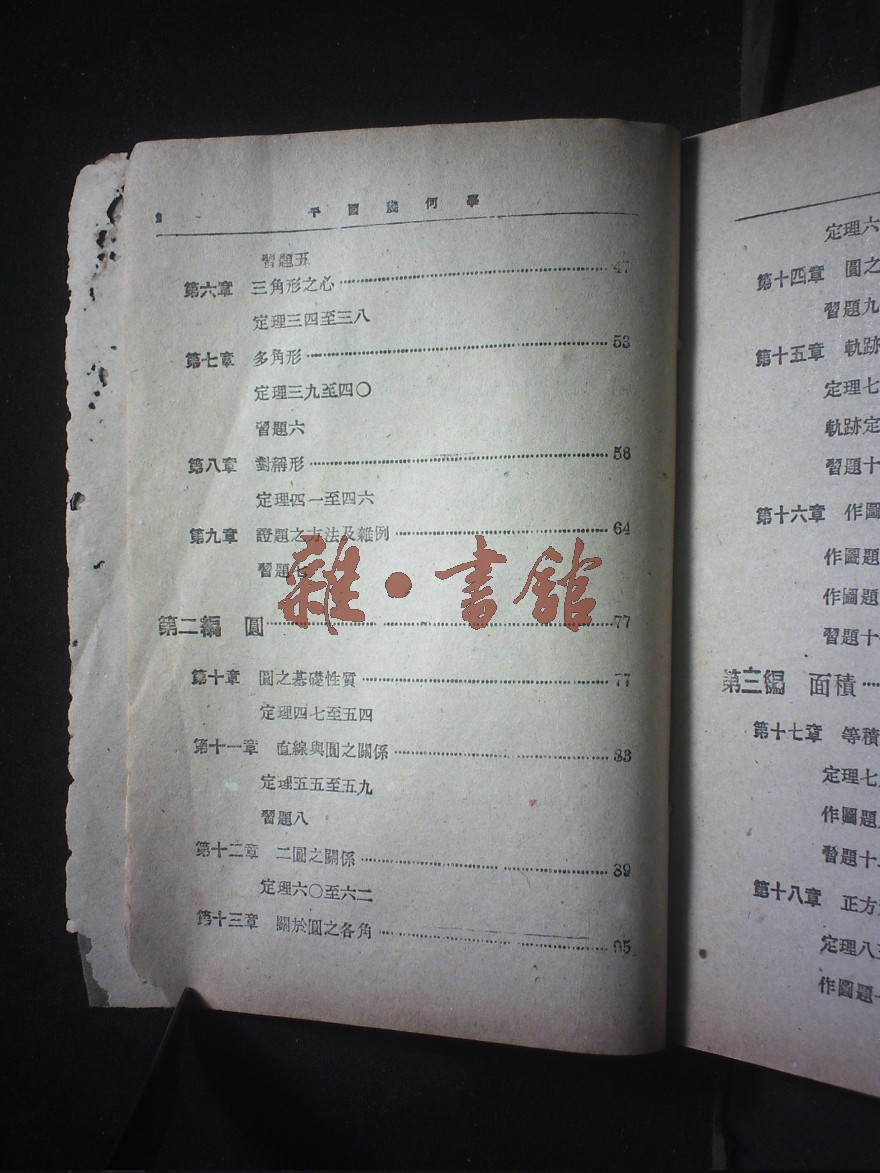 平面幾何學
習題五
第六章 三角形之心 47
定理三四至三八
第七章 多角形 53
定理三九至四〇
習題六
第八章 對稱形 58
定理四一至四六
第九章 證題之方法及雜例 64
習題七
雜·書館
第二編 圓 77
第十章 圓之基礎性質 77
定理四七至五四
第十一章 直線與圓之關係 83
定理五五至五九
習題八
第十二章 二圓之關係 89
定理六〇至六二
第十三章 關於圓之各角 95
定理六
第十四章 圓之
習題九
第十五章 軌跡
定理七
軌跡定
習題十
第十六章 作圖
作圖題
作圖題
習題十
第三編 面積
第十七章 等積
定理七
作圖題
習題十
第十八章 正方
定理八
作圖題